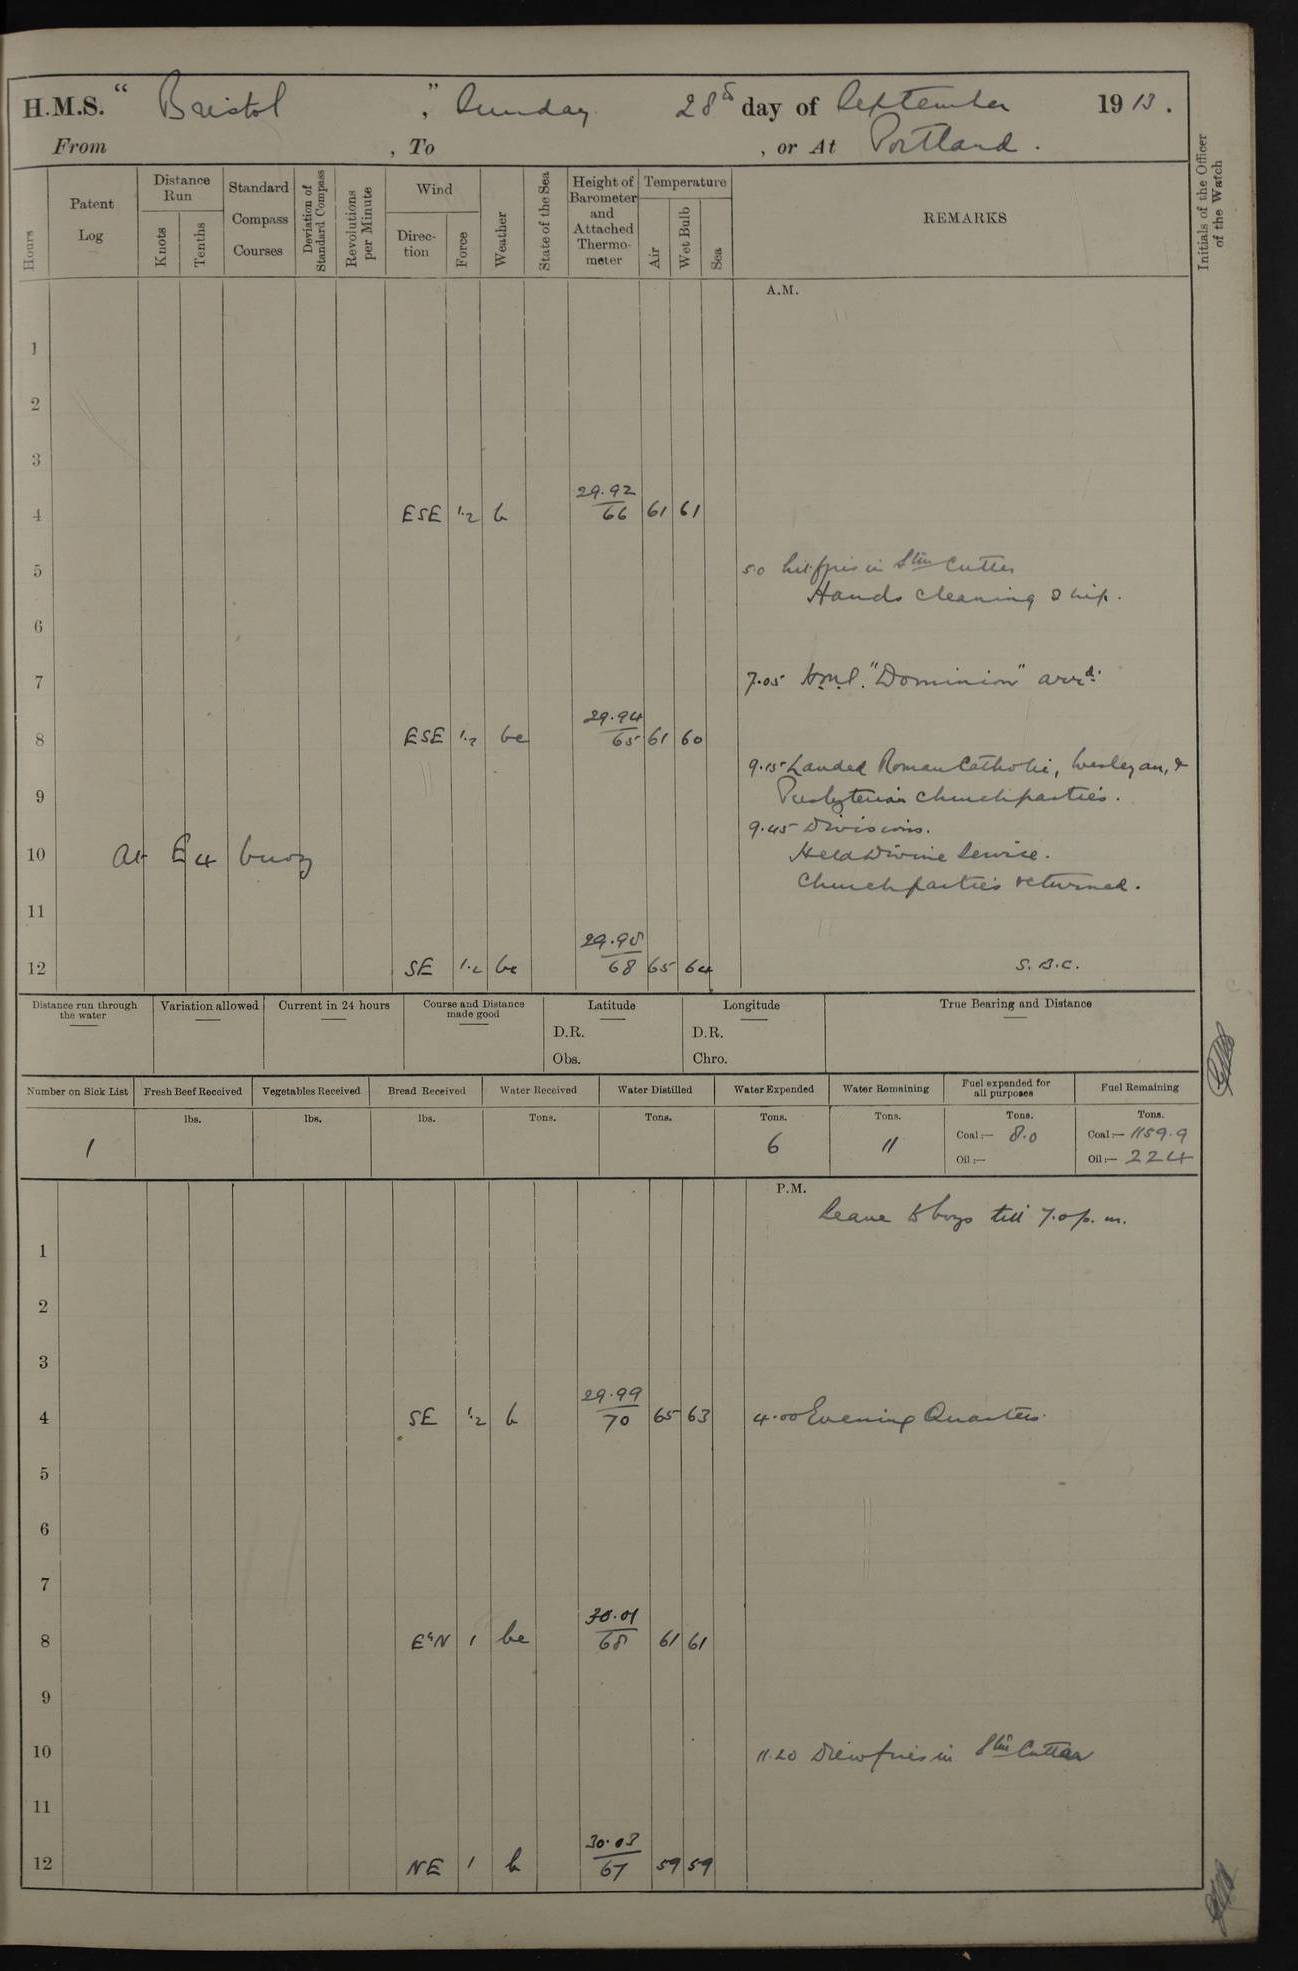 H.M.S. " Bristol ", Sunday 28th day of September 1913.
From , To , or At Portland.
Hours
Patent Log
Distance Run
Knots
Tenths
Standard Compass Courses
Deviation of Standard Compass
Revolutions per Minute
Wind
Direction
Force
Weather
State of the Sea
Height of Barometer and Attached Thermometer
Temperature
Air
Wet Bulb
Sea
REMARKS
Initials of the Officer of the Watch
A.M.
1
2
3
4 ESE 1.2 b 29.92/66 61 61
5 5.0 Lit fires in Stm Cutter
Hands cleaning ship.
6
7 7.05 H.M.S. "Dominion" arrd.
8 ESE 1.2 bc 29.94/65 61 60
9.15 Landed Roman Catholic, Wesleyan, &
9 Presbyterian Church parties.
9.45 Divisions.
10 At E4 buoy Held Divine Service.
Church parties returned.
11
12 SE 1.2 bc 29.98/68 65 64 S.B.C.
Distance run through the water
Variation allowed
Current in 24 hours
Course and Distance made good
Latitude
D.R.
Obs.
Longitude
D.R.
Chro.
True Bearing and Distance
Number on Sick List Fresh Beef Received Vegetables Received Bread Received Water Received Water Distilled Water Expended Water Remaining Fuel expended for all purposes Fuel Remaining
lbs. lbs. lbs. Tons. Tons. Tons. Tons. Tons. Tons.
1 6 11 Coal:— 8.0 Coal:— 1159.9
Oil:— Oil:— 224
P.M.
Leave to boys till 7.0 p.m.
1
2
3
4 SE 1.2 b 29.99/70 65 63 4.00 Evening Quarters.
5
6
7
8 E'N 1 bc 30.01/68 61 61
9
10 11.20 Drew fires in Stm Cutter
11
12 NE 1 b 30.03/67 59 59